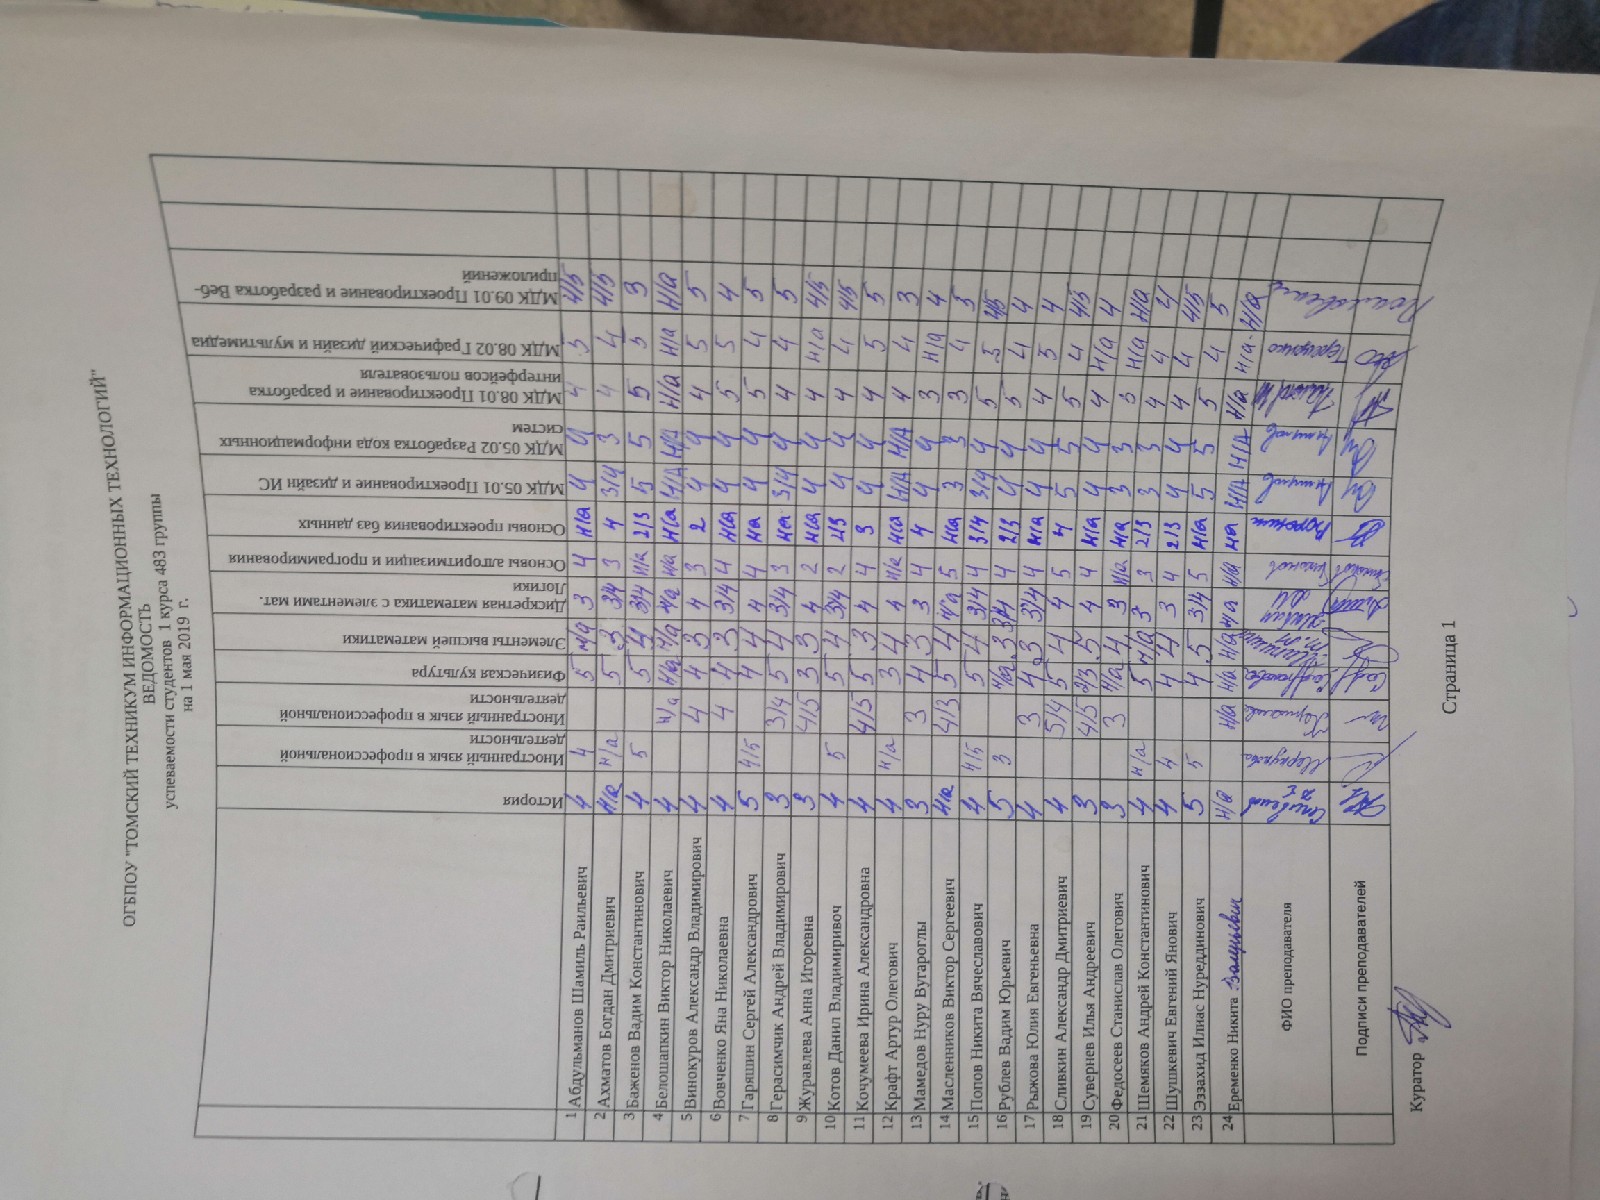 ОГБПОУ "ТОМСКИЙ ТЕХНИКУМ ИНФОРМАЦИОННЫХ ТЕХНОЛОГИЙ"
ВЕДОМОСТЬ
успеваемости студентов 1 курса 483 группы
на 1 мая 2019 г.
История
Иностранный язык в профессиональной деятельности
Иностранный язык в профессиональной деятельности
Физическая культура
Элементы высшей математики
Дискретная математика с элементами мат. Логики
Основы алгоритмизации и программирования
Основы проектирования баз данных
МДК 05.01 Проектирование и дизайн ИС
МДК 05.02 Разработка кода информационных систем
МДК 08.01 Проектирование и разработка интерфейсов пользователя
МДК 08.02 Графический дизайн и мультимедиа
МДК 09.01 Проектирование и разработка Веб-приложений
1 Абдульманов Шамиль Раильевич 4 4 5 н/а 3 4 н/а 4 4 4 3 4/5
2 Ахматов Богдан Дмитриевич н/а н/а 5 3 3/4 3 4 3/4 3 4 4 4/5
3 Баженов Вадим Константинович 4 5 5 4 3/4 н/а 2/3 5 5 5 5 3
4 Белошапкин Виктор Николаевич 4 н/а н/а н/а н/а н/а н/а н/а н/а н/а н/а н/а
5 Винокуров Александр Владимирович 4 4 4 3 4 3 2 4 4 4 5 5
6 Вовченко Яна Николаевна 4 4 4 3 3/4 4 н/а 4 4 5 5 4
7 Гаряшин Сергей Александрович 5 4/5 4 4 4 4 на 4 4 5 4 5
8 Герасимчик Андрей Владимирович 3 3/4 5 4 3/4 3 на 3/4 4 4 4 5
9 Журавлева Анна Игоревна 3 4/5 3 3 4 2 н/а 4 4 4 н/а 4/5
10 Котов Данил Владимиривоч 4 5 5 4 3/4 2 2/3 4 4 4 4 4/5
11 Кочумеева Ирина Александровна 4 4/5 5 3 4 4 3 4 4 4 5 5
12 Крафт Артур Олегович 4 н/а 3 4 4 н/а н/а н/а н/а 4 4 3
13 Мамедов Нуру Вугароглы 3 3 4 3 3 4 4 4 4 3 н/а 4
14 Масленников Виктор Сергеевич н/а 4/3 5 4 н/а 5 н/а 3 3 3 4 5
15 Попов Никита Вячеславович 4 4/5 5 4 3/4 4 3/4 3/4 4 5 5 4/5
16 Рублев Вадим Юрьевич 5 3 н/а 3 3/4 4 2/3 4 4 5 4 4
17 Рыжова Юлия Евгеньевна 4 3 4 3 3/4 4 н/а 4 4 4 5 4
18 Сливкин Александр Дмитриевич 4 5/4 5 4 4 5 4 5 5 5 4 4/5
19 Сувернев Илья Андреевич 3 4/5 2/3 5 4 4 н/а 4 4 4 н/а 4
20 Федосеев Станислав Олегович 3 3 н/а 4 3 н/а н/а 3 3 3 н/а н/а
21 Шемяков Андрей Константинович 4 н/а 5 н/а 3 3 2/3 3 3 4 4 4
22 Шушкевич Евгений Янович 4 4 4 4 3 4 2/3 4 4 4 4 4/5
23 Эззахид Илиас Нуреддинович 5 5 4 5 3/4 5 н/а 5 5 5 4 5
24 Еременко Никита Валерьевич н/а н/а н/а н/а на н/а на н/а н/а н/а н/а н/а
ФИО преподавателя Меркулова Сафронова Воронин
Подписи преподавателей
Куратор
Страница 1